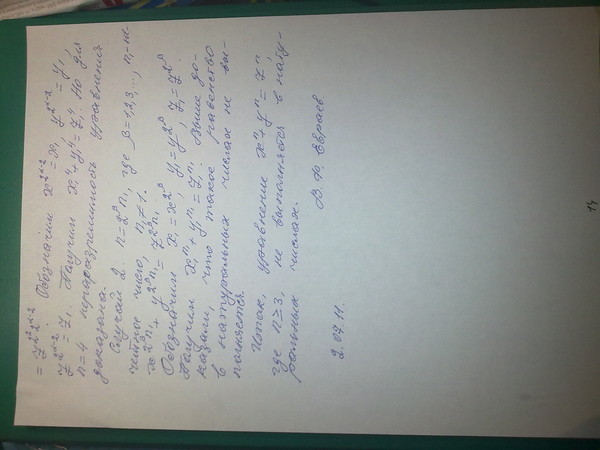 = z^{2^2 2^{α-2}}. Обозначим x^{2^{α-2}} = x₁, y^{2^{α-2}} = y₁,
z^{2^{α-2}} = z₁. Получим x₁⁴ + y₁⁴ = z₁⁴. Но для
n = 4 неразрешимость уравнения
доказана.
Случай 2. n = 2^β n₁, где β = 1, 2, 3, ..., n₁ - не-
чётное число, n₁ ≠ 1.
x^{2^β n₁} + y^{2^β n₁} = z^{2^β n₁}
Обозначим x₁ = x^{2^β}, y₁ = y^{2^β}, z₁ = z^{2^β}
Получим x₁^{n₁} + y₁^{n₁} = z₁^{n₁}. Выше до-
казали, что такое равенство
в натуральных числах не вы-
полняется.
Итак, уравнение xⁿ + yⁿ = zⁿ,
где n ≥ 3, не выполняется в нату-
ральных числах.
2.07.11. В. Ф.
14